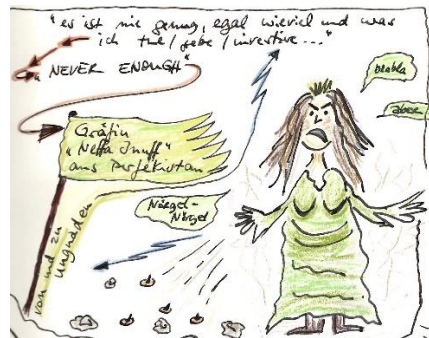 "es ist nie genug, egal wieviel und was
ich tue/gebe/investiere..."
"NEVER ENOUGH"
Gräfin
"Neffa Inuff"
aus Perfektistan
von und zu Ungnaden
Nörgel-
Nörgel
blabla
aber